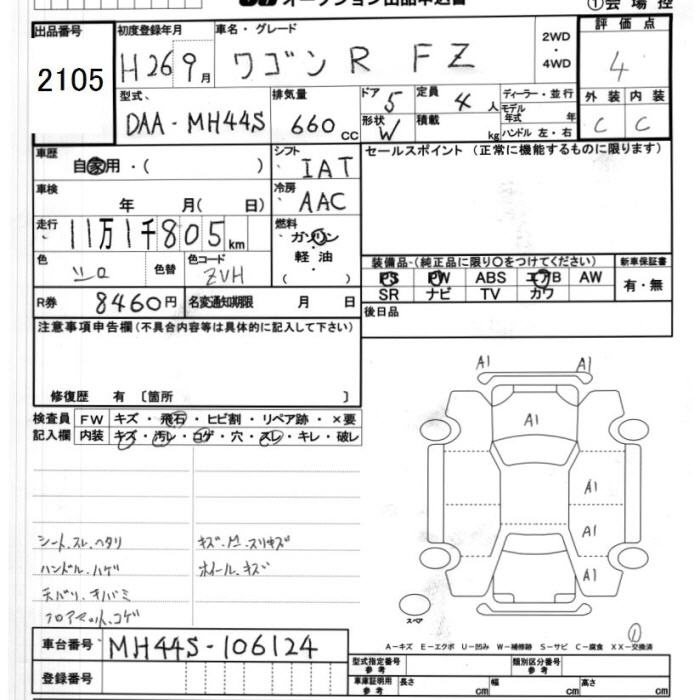 オークション出品申込書
①会場控
出品番号
2105
初度登録年月
H26 9月
車名・グレード
ワゴンR FZ
2WD
・
4WD
評価点
4
外装 内装
C C
型式
DAA-MH44S
排気量
660cc
ドア 5
形状 W
定員 4人
積載 kg
ディーラー・並行
モデル年式 年
ハンドル 左・右
車歴
自家用・( )
シフト
IAT
セールスポイント(正常に機能するものに限ります)
車検
年 月( 日)
冷房
AAC
走行
11万1千805km
燃料
ガソリン
軽油
( ・ )
色
シロ
色替
色コード
ZVH
装備品-(純正品に限り○をつけてください)
PS PW ABS エアB AW
SR ナビ TV カワ
新車保証書
有・無
R券 8460円
名変通知期限 月 日
後日品
注意事項申告欄(不具合内容等は具体的に記入して下さい)
修復歴 有 〔箇所 〕
検査員記入欄
FW キズ・飛石・ヒビ割・リペア跡・×要
内装 キズ・汚レ・コゲ・穴・スレ・キレ・破レ
シート、スレ、ヘタリ
ハンドル、ハゲ
天バリ、キバミ
フロアマット、コゲ
キズ、凹、スリキズ
ホイール、キズ
A1 A1
A1
A1
A1
A1
スペア
①
A-キズ E-エクボ U-凹み W-補修跡 S-サビ C-腐食 XX-交換済
車台番号 MH44S-106124
登録番号
型式指定番号参考
類別区分番号参考
車庫証明用参考 長さ cm 幅 cm 高さ cm